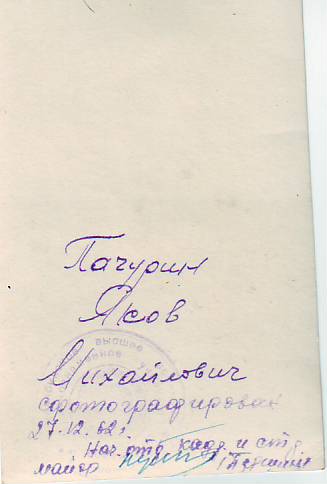 Пачурин
Яков
Михайлович
сфотографирован
27.12.62г
Нач. отд. кадр. и
майор
ВЫСШЕЕ